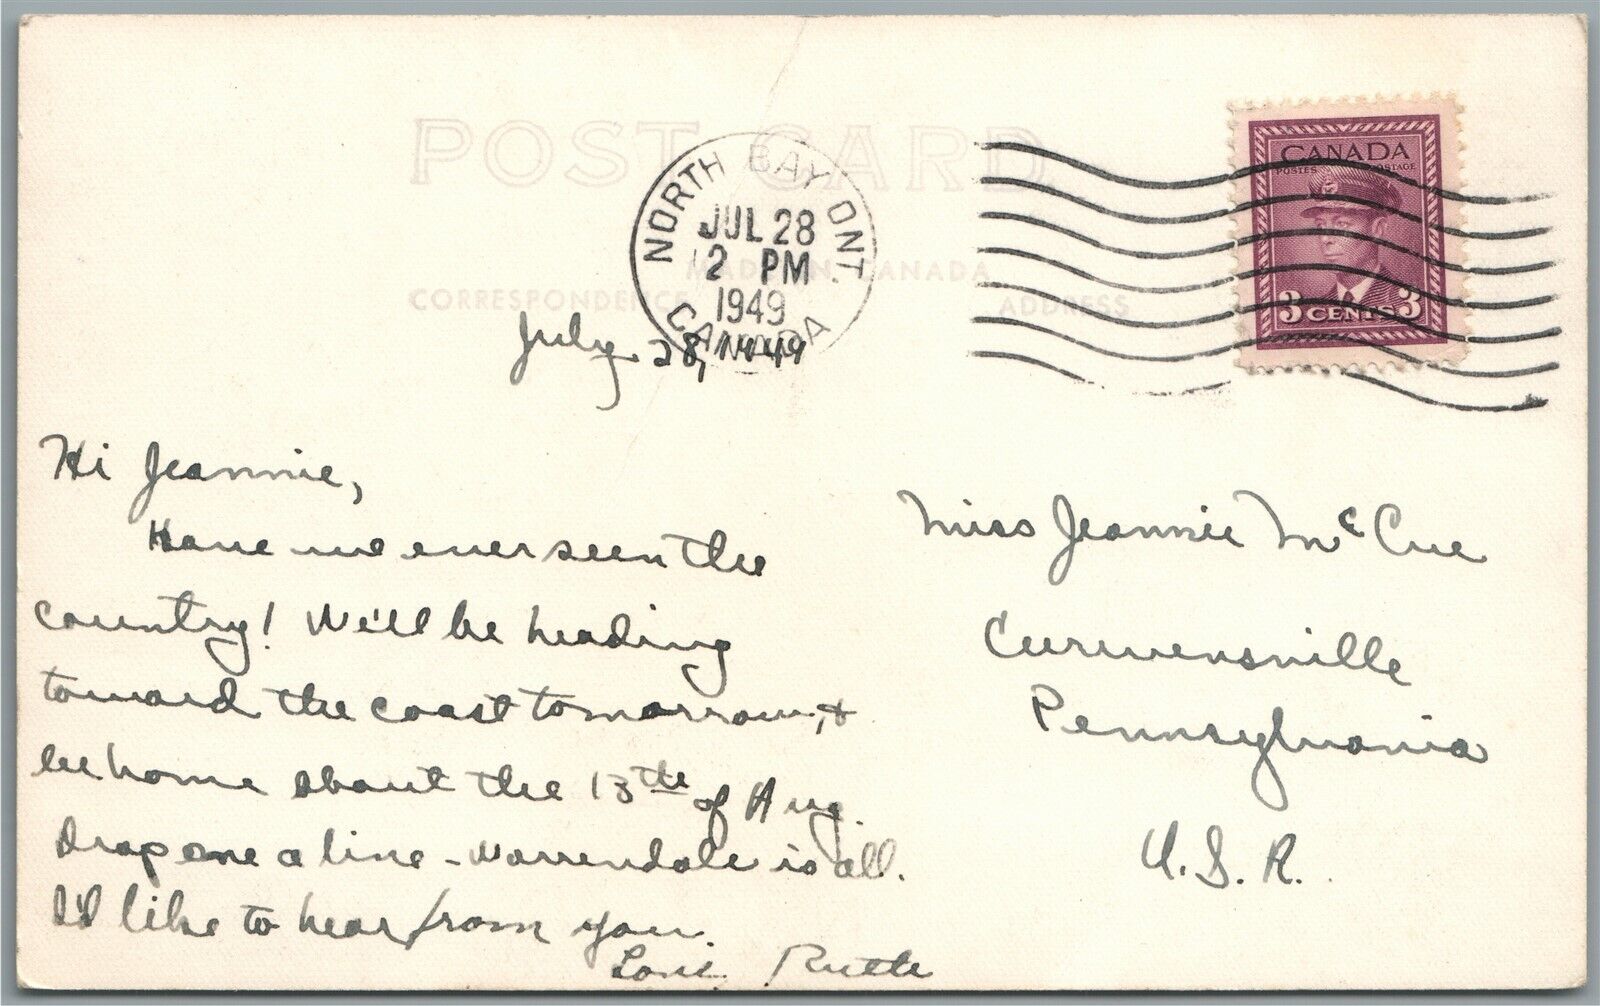 POST CARD
NORTH BAY ONT.
JUL 28
12 PM
1949
CANADA
CANADA
POSTES POSTAGE
3 CENTS 3
MADE IN CANADA
CORRESPONDENCE ADDRESS
July 28, 1949
Hi Jeannie,
Have we ever seen the
country! We'll be heading
toward the coast tomorrow, &
be home about the 13th of Aug.
Drop me a line - Warrendale is all.
I'd like to hear from you.
Love, Ruth
Miss Jeannie McCue
Curwensville
Pennsylvania
U. S. A.